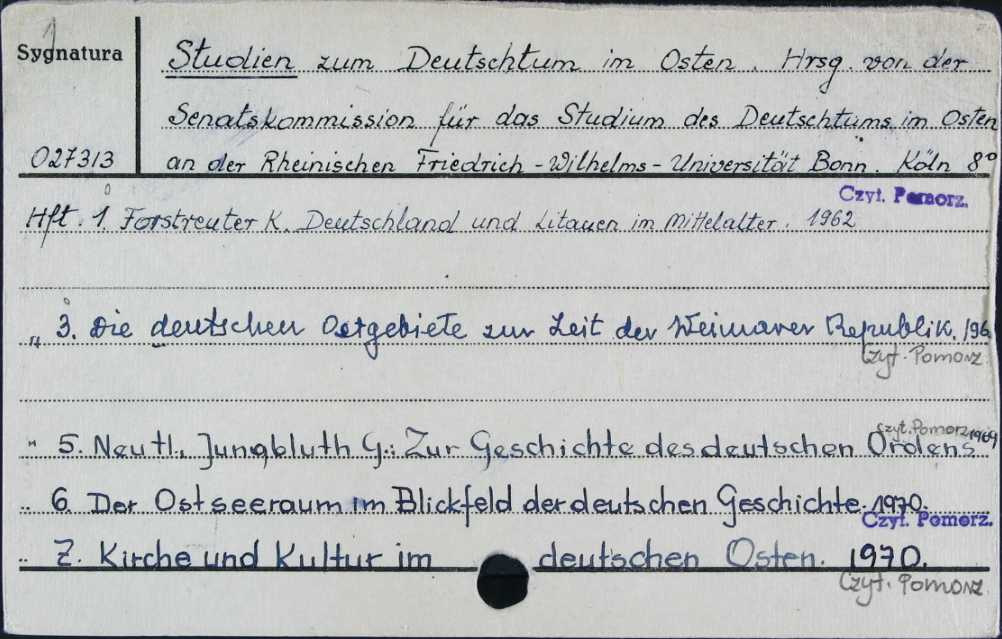 Sygnatura
Studien zum Deutschtum im Osten. Hrsg. von der
Senatskommission für das Studium des Deutschtums im Osten
027313 an der Rheinischen Friedrich-Wilhelms-Universität Bonn. Köln 8°
Czyt. Pomorz.
Hft. 1. Forstreuter K. Deutschland und Litauen im Mittelalter. 1962
„ 3. Die deutschen Ostgebiete zur Zeit der Weimarer Republik. 196
Czyt. Pomorz.
czyt. Pomorz. 1969
" 5. Neutl., Jungbluth G.: Zur Geschichte des deutschen Ordens
" 6. Der Ostseeraum im Blickfeld der deutschen Geschichte. 1970.
Czyt. Pomorz.
" 7. Kirche und Kultur im deutschen Osten. 1970.
Czyt. Pomorz.